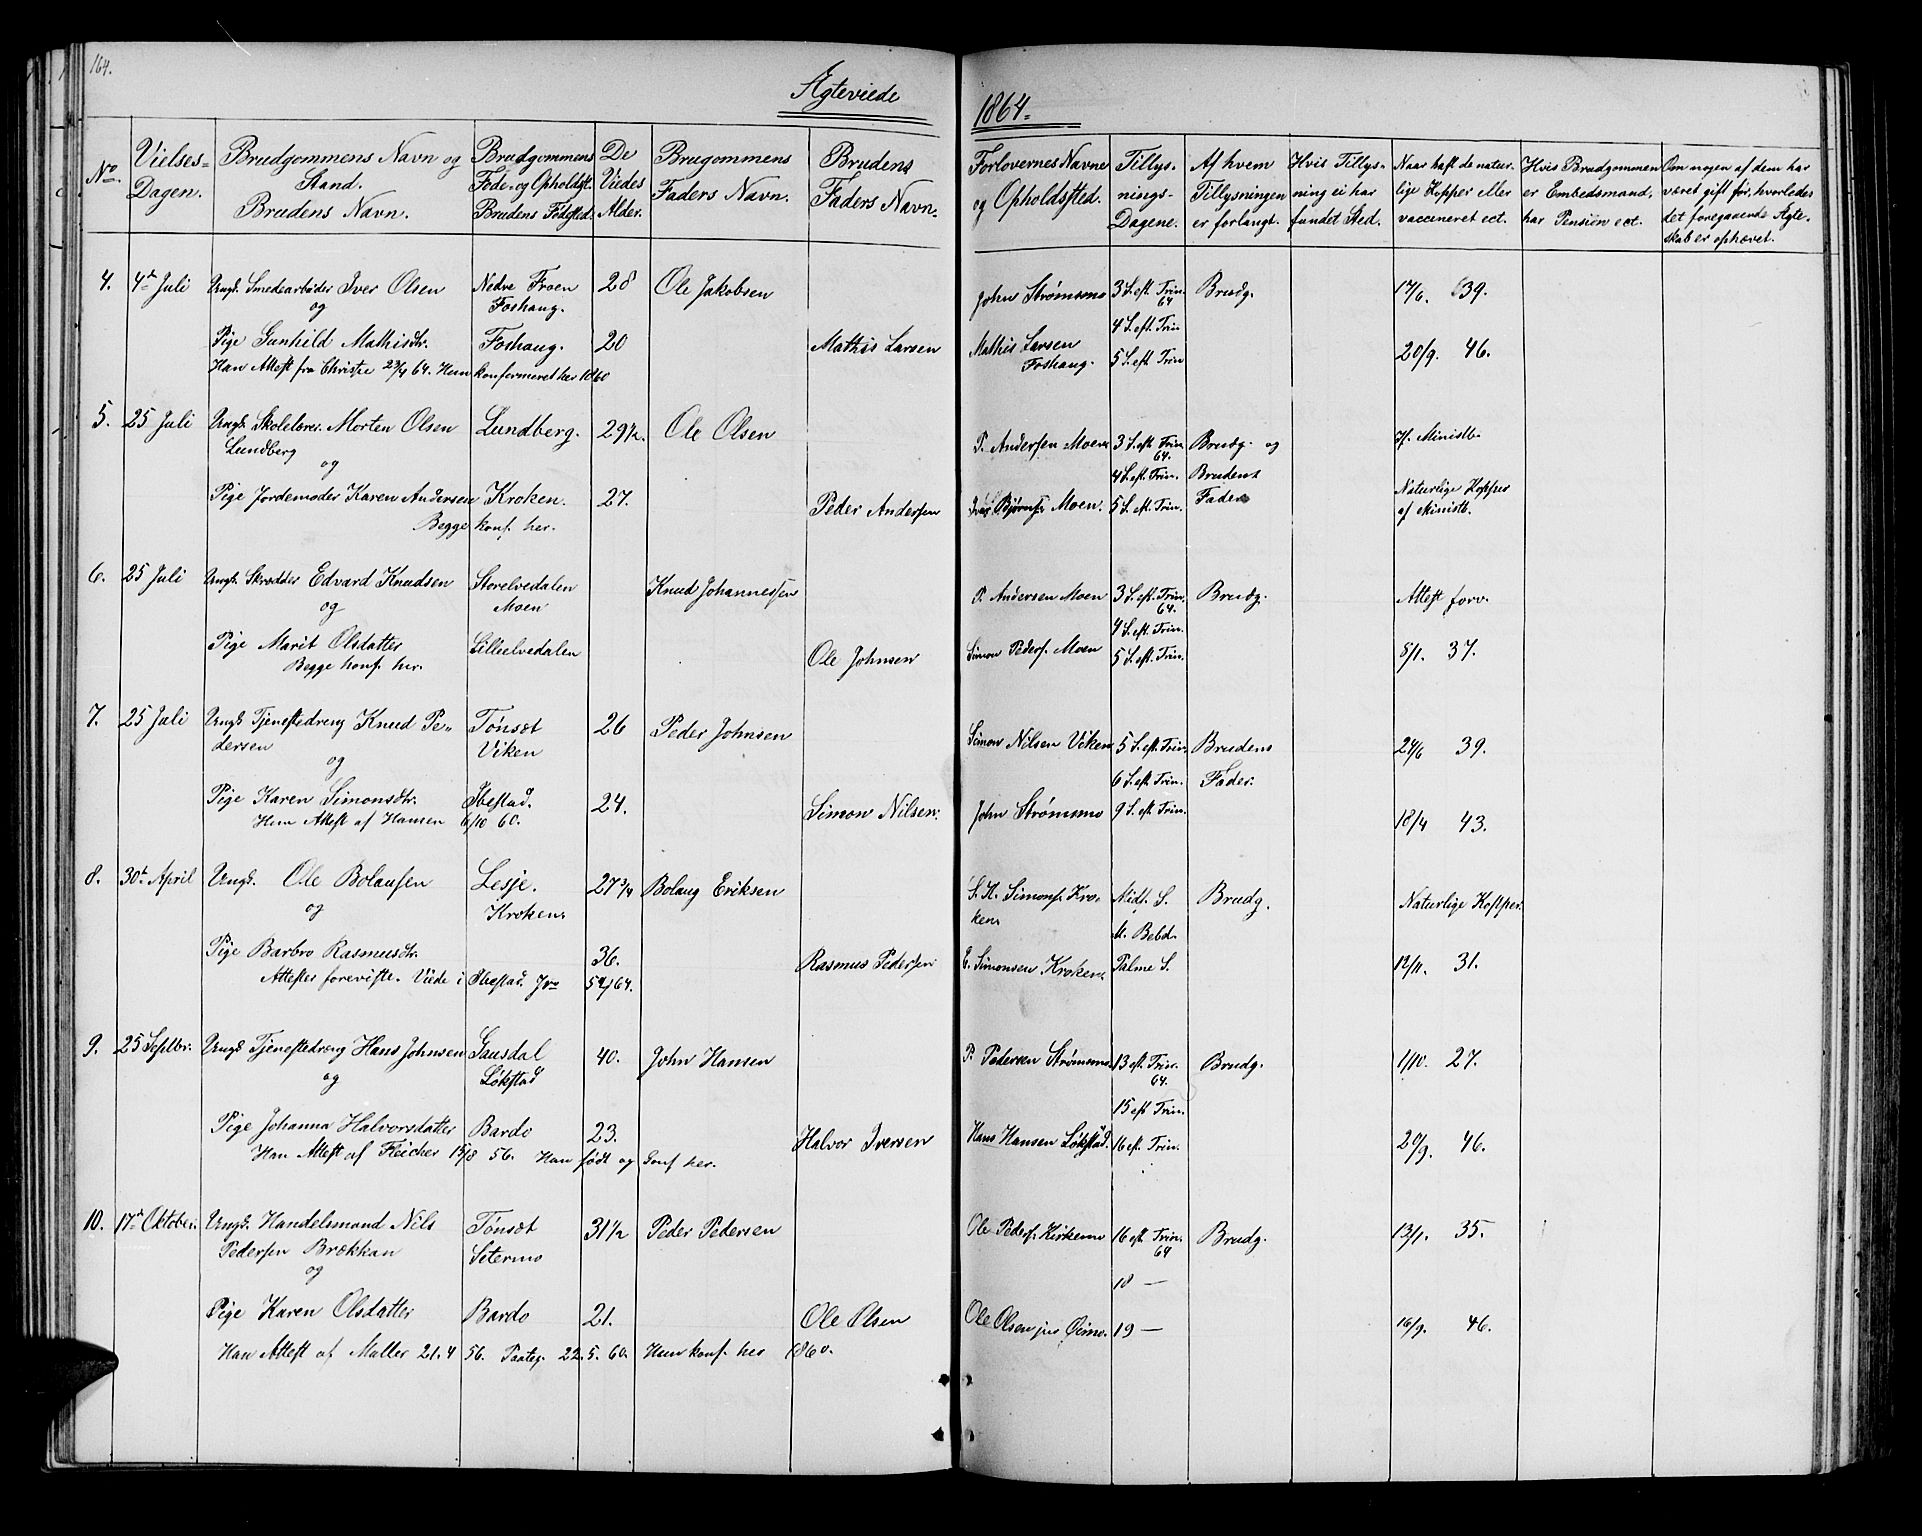 164.
Ægteviede
1864.
No.
Vielses-
Dagen.
Brudgommens Navn og
Stand.
Brudens Navn.
Brudgommens
Føde- og Opholdsst.
Brudens Fødsted.
De
Viedes
Alder.
Brugommens
Faders Navn.
Brudens
Faders Navn.
Forlovernes Navne
og Opholdsted.
Tillys-
nings-
Dagene.
Af hvem
Tillysningen
er forlangt.
Hvis Tillys-
ning ei har
fundet Sted.
Naar haft de natur-
lige Kopper eller
vaccineret ect.
Hvis Brudgommen
er Embedsmand,
har Pension ect.
Om nogen af dem har
været gift før, hvorledes
det foregaaende Ægte-
skab er ophævet.
4. 4de Juli Ungk. Smedearbeider Iver Olsen Nedre Froen 28 Ole Jakobsen John Strømsmo 3 S. eft. Trin. 64 Brudg. 17/6. 39.
og Foshaug. 4 S. eft. Trin
Pige Gunhild Mathisdtr. Foshaug. 20 Mathis Larsen Mathis Larsen Foshaug. 5 S. eft. Trin 20/9. 46.
Han Attest fra Christie 23/4 64. Hun konfermeret her 1860
5. 25 Juli Ungk. Skolelærer Morten Olsen Lundberg. 29 1/2. Ole Olsen P. Andersen Moen 3 S. eft. Trin. 64. Brudg. og if. Ministb.
Lundberg
og 4 S. eft. Trin. Brudens
Pige Jordemoder Karen Andersen Kroken. 27. Peder Andersen Iver Bjørns. Moen. 5 S. eft. Trin. Fader Naturlige Kopper
Begge konf. her. af Ministb.
6. 25 Juli Ungk. Skrædder Edvard Knudsen Storelvedalen Knud Johannessen P. Andersen Moen 3 S. eft. Trin. 64. Brudg. Attest forv.
og Moen 4 S. eft. Trin.
Pige Marit Olsdatter Lilleelvedalen Ole Johnsen Simon Peders. Moen 5 S. eft. Trin. 8/1. 37.
Begge konf. her.
7. 25 Juli Ungk. Tjenestedreng Knud Pe- Tønsæt 26 Peder Johnsen Simon Nilsen Viken 5 S. eft. Trin. Brudens 24/6 39.
dersen Viken
og 6 S. eft. Trin. Fader.
Pige Karen Simonsdtr. Ibestad. 24. Simon Nilsen. John Strømsmo 9 S. eft. Trin. 18/4 43.
Hun Attest af Hansen 6/10 60.
8. 30te April Ungk. Ole Bolausen Lesje. 27 3/4 Bolaug Eriksen S. H. Simons. Kro- Midf. S. Brudg. Naturlige Kopper.
og Kroken. ken M. Bebd.
Pige Barbro Rasmusdtr. 36. Rasmus Pedersen E. Simonsen Kroken. Palme S. 12/11. 31.
Attester foreviste. Viede i Ibestad. Jvo 59/64.
9. 25 Septbr. Ungk. Tjenestedreng Hans Johnsen Gausdal 40. John Hansen P. Pedersen Strømsmo. 13 eft. Trin. 64. Brudg. 1/10. 27.
og Løkstad 15 eft Trin.
Pige Johanna Halvorsdatter Bardo 23. Halvor Iversen Hans Hansen Løkstad. 16 eft. Trin. 20/9. 46.
Han Attest af Fleicher 15/8 56. Hun født og konf her.
10. 17de Oktober. Ungk. Handelsmand Nils Tønsæt 31 1/2 Peder Pedersen Ole Peders. Kirkemo 16 eft. Trin. 64 Brudg. 13/1. 35.
Pedersen Brækkan Setermo
og 18 —
Pige Karen Olsdatter Bardo 21. Ole Olsen Ole Olsen jun Øimo. 19 — 16/9. 46.
Han Attest af Møller 21. 4 56. Paateg. 22. 5. 60. Hun konf. her 1860.